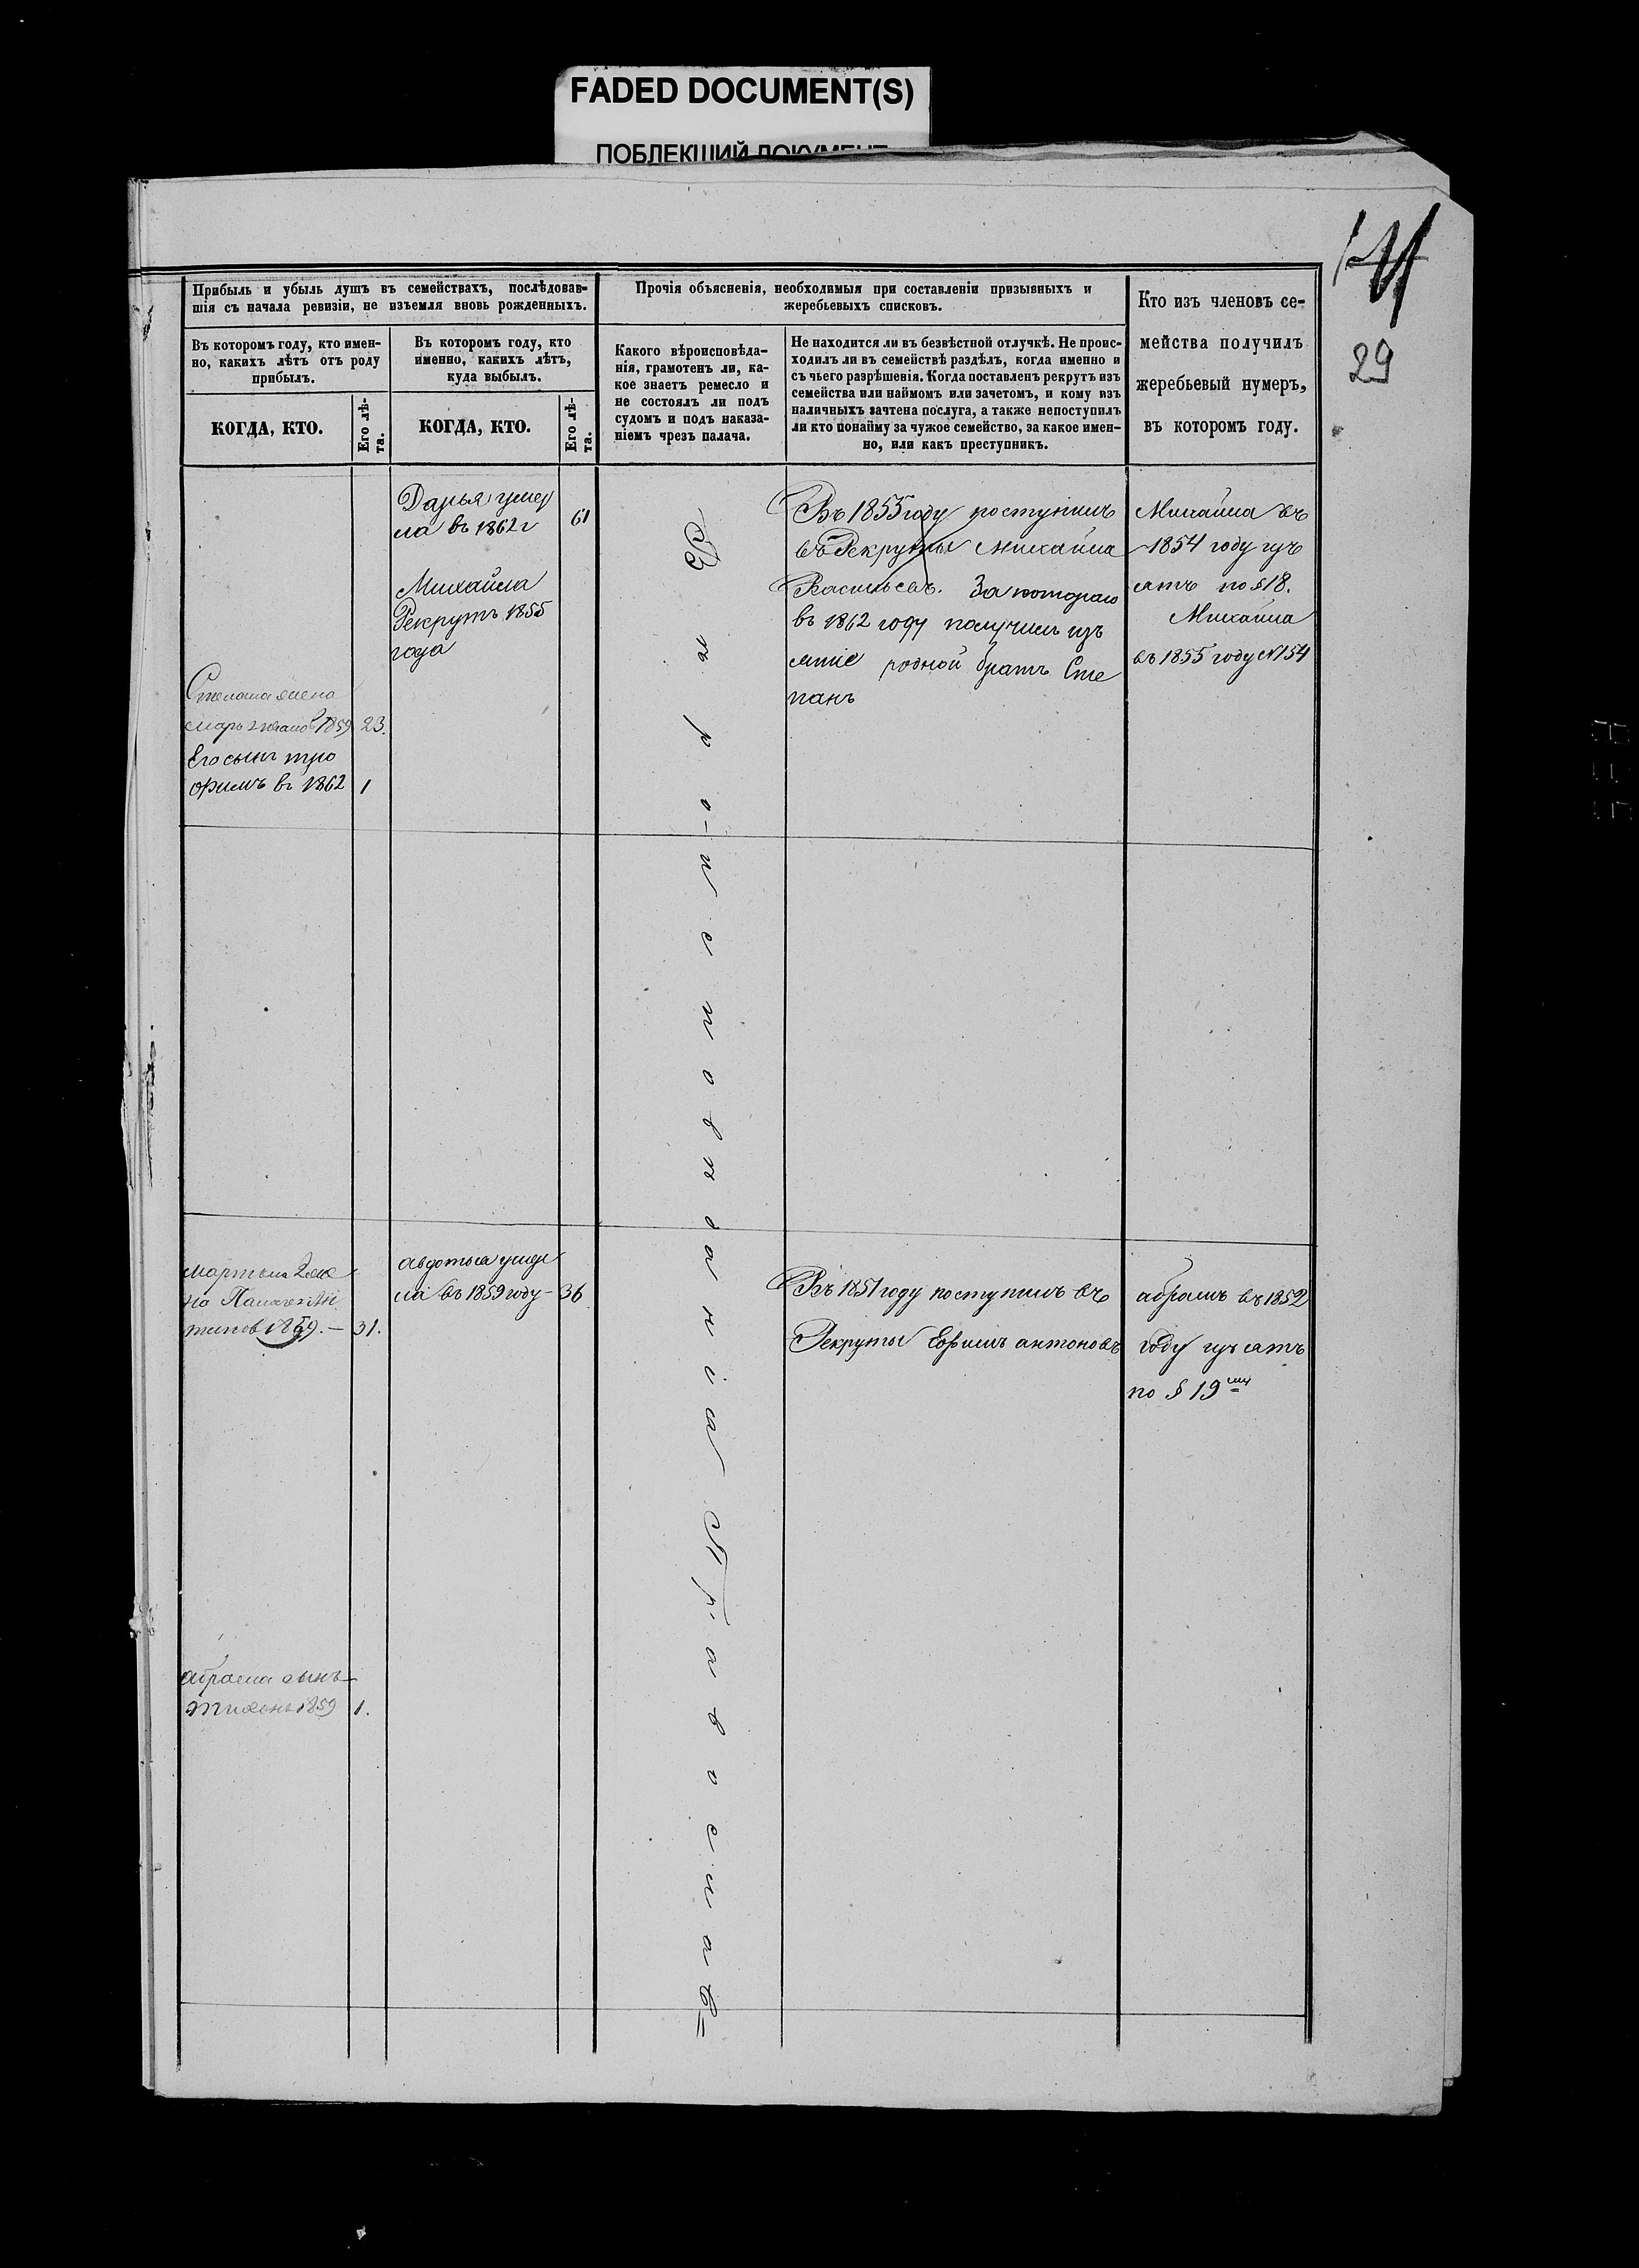 FADED DOCUMENT(S)
ПОБЛЕКШИЙ ДОКУМЕНТ
29
Прибыль и убыль душъ въ семействахъ, послѣдовав-
шія съ начала ревизіи, не изъемля вновь рожденныхъ.
Въ которомъ году, кто имен-
но, какихъ лѣтъ отъ роду
прибылъ.
КОГДА, КТО.
Его лѣ-
та.
Въ которомъ году, кто
именно, какихъ лѣтъ,
куда выбылъ.
КОГДА, КТО.
Его лѣ-
та.
Прочія объясненія, необходимыя при составленіи призывныхъ и
жеребьевыхъ списковъ.
Какого вѣроисповѣда-
нія, грамотенъ ли, ка-
кое знаетъ ремесло и
не состоялъ ли подъ
судомъ и подъ наказа-
ніемъ чрезъ палача.
Не находится ли въ безвѣстной отлучкѣ. Не проис-
ходилъ ли въ семействѣ раздѣлъ, когда именно и
съ чьего разрѣшенія. Когда поставленъ рекрутъ изъ
семейства или наймомъ или зачетомъ, и кому изъ
наличныхъ зачтена послуга, а также непоступилъ
ли кто понайму за чужое семейство, за какое имен-
но, или какъ преступникъ.
Кто изъ членовъ се-
мейства получилъ
жеребьевый нумеръ,
въ которомъ году.
Дарья умер
ла въ 1862 г
61
Михайла
Рекрутъ 1855
года
Степана жена
1859
23.
Его сынъ тро
фимъ въ 1862
1
Въ 1855 году поступилъ
въ Рекруты Михайла
Васильевъ. За котораго
въ 1862 году получилъ изъ
ятіе родной братъ Сте
панъ
Михайла въ
1854 году изъ
ятъ по § 18.
Михайла
въ 1855 году № 154
Мартына 2 жена
31.
авдотья умер
ла въ 1859 году
36
Въ 1851 году поступилъ въ
Рекруты Ефимъ антоновъ
абрамъ въ 1852
году изъятъ
по § 19
абрама сынъ
тихонъ 1859
1.
Вѣроисповѣданія Православнаго